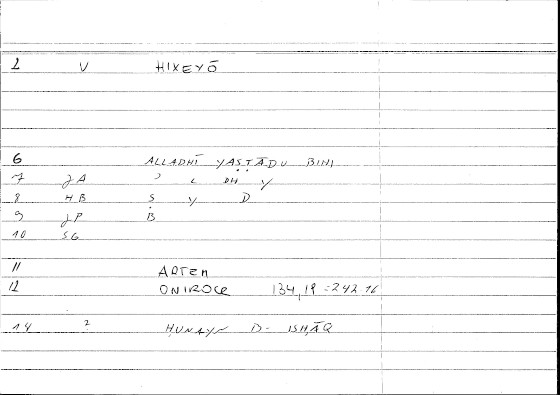 1 V HIXEYŌ
6 ALLADHĪ YAṢṬĀDU BIHI
7 JA ʾ L DH Y
8 HB Ṣ Y D
9 JP B
10 SG
11 ARTEM
12 ONIROCR 134,19 = 242 16
14 ? ḤUNAYN B- ISḤĀQ